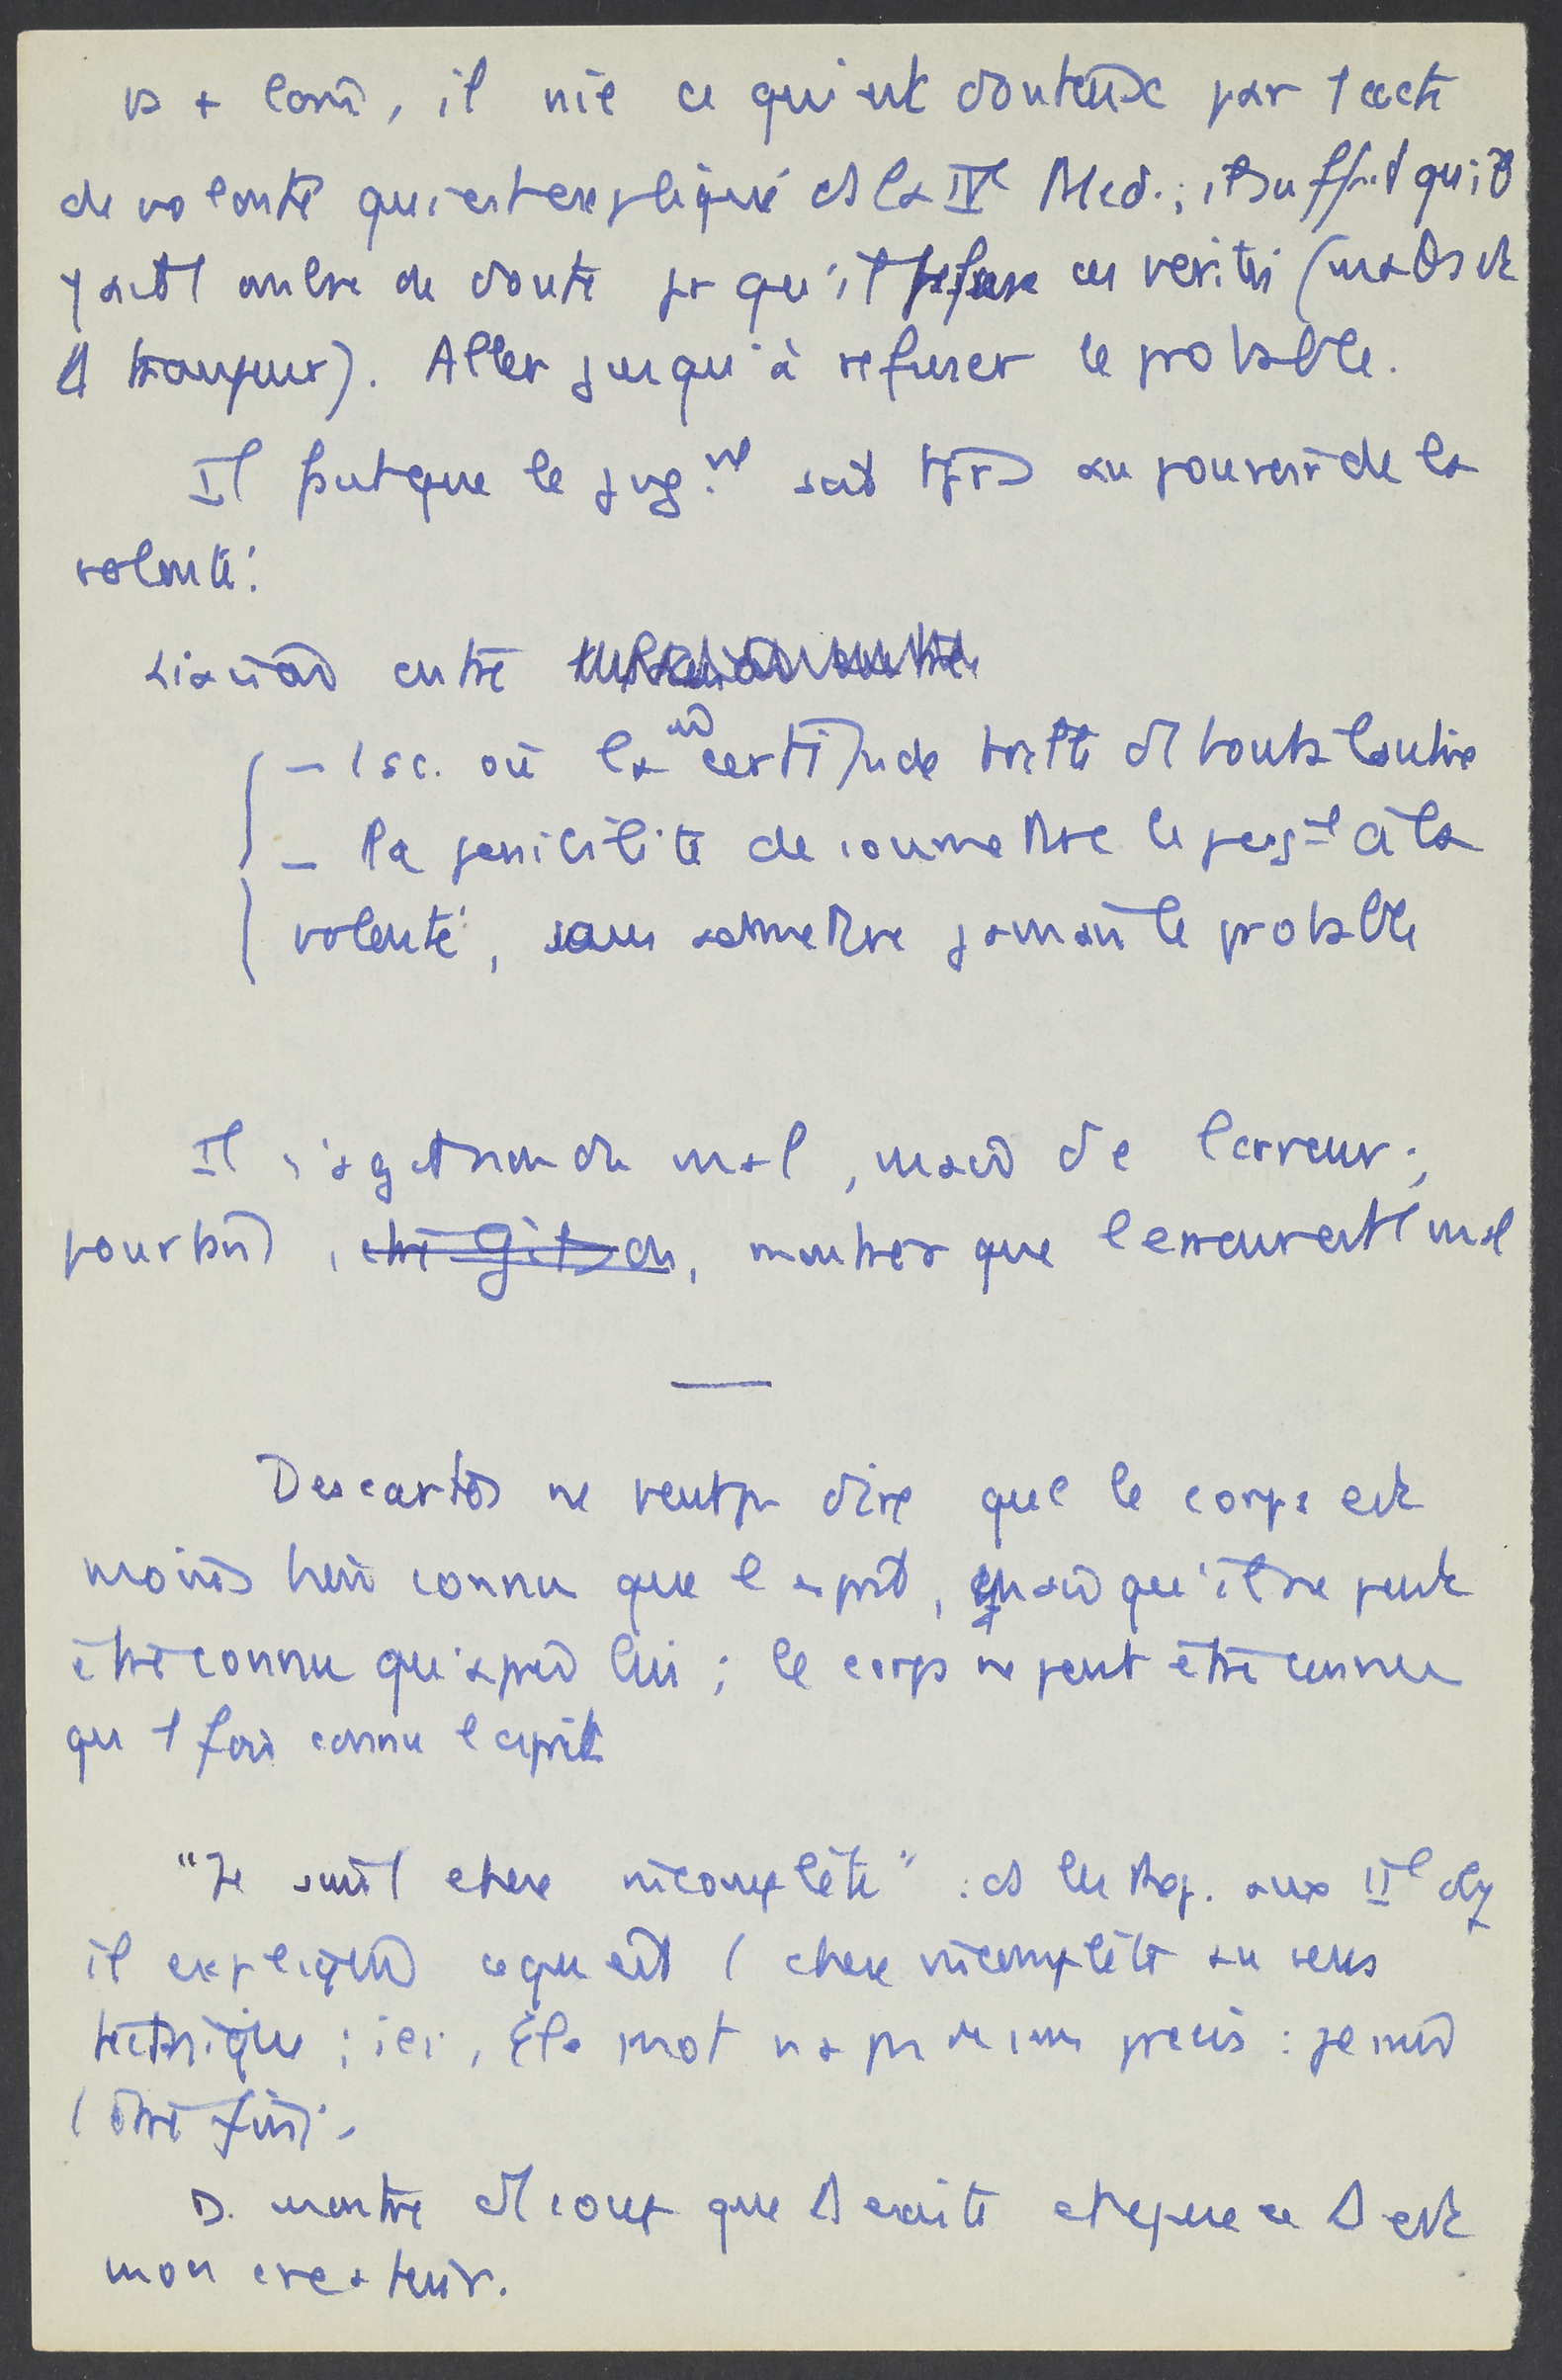 va + loin, il nie ce qui est douteux par 1 acte
de volonté qui est expliqué ds la IVe Med.; il suffit qu'il
y ait 1 ombre de doute pr qu'il refuse ces vérités (
trompeur). Aller jusqu'à refuser le probable.
Il faut que le jugt soit tjrs au pouvoir de la
volonté.
Liaison entre
– 1 sc. où la certitude d'1 bout à l'autre
– la possibilité de soumettre le jugt à la
volonté, sans admettre jamais le probable
Il s'agit non du mal, mais de l'erreur;
pourtant, montrer que l'erreur est 1 mal
Descartes ne veut pas dire que le corps est
moins bien connu que l'esprit, mais qu'il ne peut
être connu qu'après lui; le corps ne peut être connu
qu'1 fois connu l'esprit
"Je suis 1 chose incomplète" : ds les Rep. aux IIe obj
il explique ce que est 1 chose incomplète au sens
technique; ici, le mot n'a pas de sens précis : je suis
1 être fini.
D. montre d'1 coup que D existe et que ce D est
mon créateur.